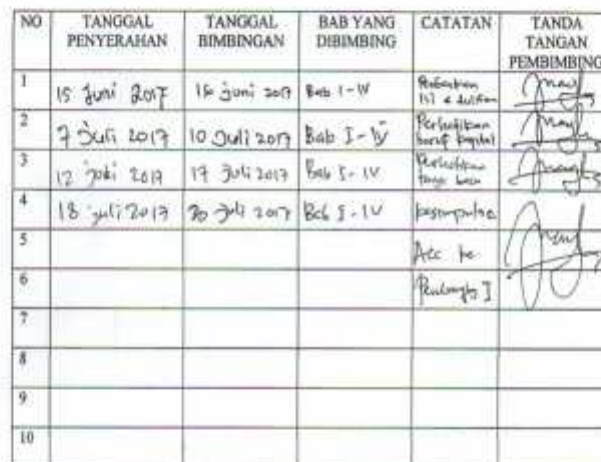 NO TANGGAL PENYERAHAN TANGGAL BIMBINGAN BAB YANG DIBIMBING CATATAN TANDA TANGAN PEMBIMBING
1 15 Juni 2017 16 juni 2017 Bab I-IV Perbaikan isi & tulisan
2 7 Juli 2017 10 Juli 2017 Bab I-IV Perhatikan huruf kapital
3 12 Juli 2017 17 Juli 2017 Bab I-IV Perhatikan tanda baca
4 18 juli 2017 20 Juli 2017 Bab I-IV kesimpulan
5 Acc ke
6 Pembimbing I
7
8
9
10